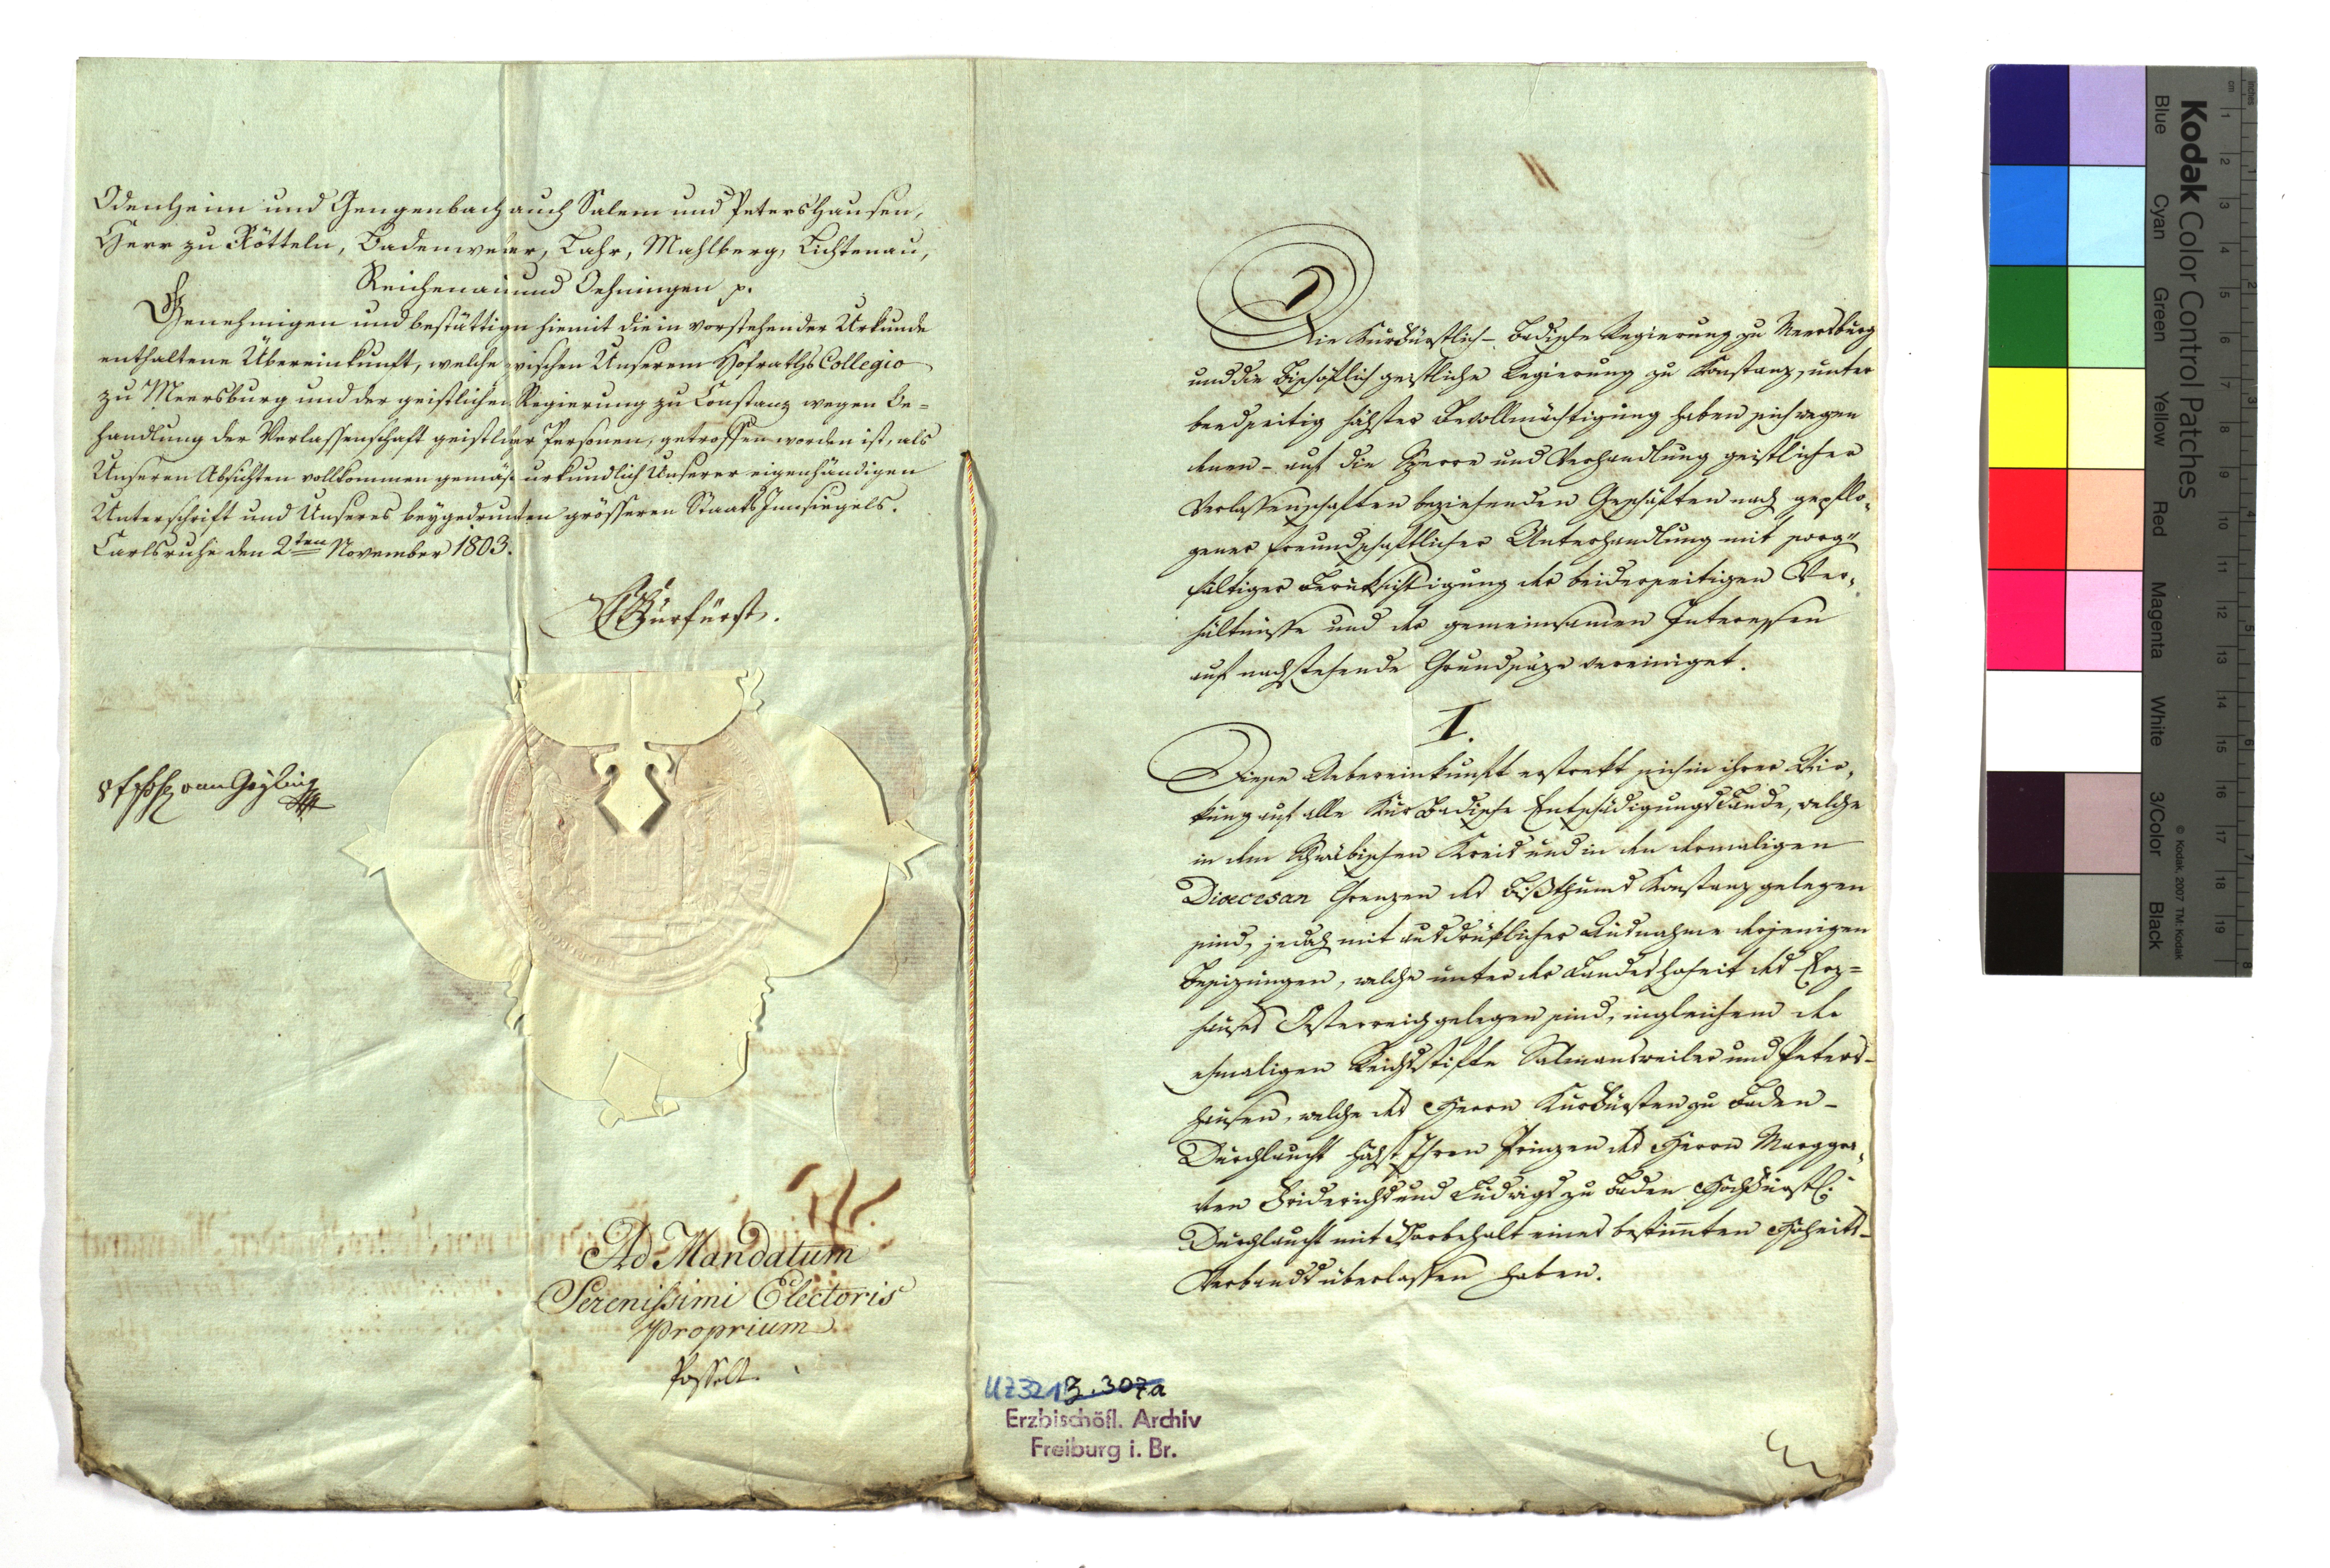 Odenheim und Gengenbach auch Salem und Petershausen,
Herr zu Rötteln, Badenweiler, Lahr, Mahlberg, Lichtenau,
Reichenau und Oehningen p.
Genehmigen und bestättigen hiemit die in vorstehender Urkunde
enthaltene Übereinkunft, welche zwischen Unserem Hofraths Collegio
zu Meersburg und der geistlichen Regierung zu Constanz wegen Be=
handlung der Verlassenschaft geistlicher Personen, getroffen worden ist, als
Unseren Absichten vollkommen gemäß urkundlich Unserer eigenhändigen
Unterschrift und Unseres beygedruckten grösseren Staats Innsiegels.
Carlsruhe den 2ten November 1803.
Churfürst.
Ad Mandatum
Serenissimi Electoris
proprium
Posselt
Die Kurfürstlich-Badische Regierung zu Meersburg
und die Bischöflich geistliche Regierung zu Konstanz, unter
beedseitig höchster Bevollmächtigung haben sich wegen
denen - auf die Sperre und Verhandlung geistlicher
Verlassenschaften beziehenden Geschäften nach gepflo,
gener freundschaftlicher Unterhandlung mit sorg"
fältiger Berüksichtigung der beiderseitigen Ver,
hältnisse und des gemeinsamen Interessen
auf nachstehende Grundsäze vereiniget.
I.
Diese Uebereinkunft erstrekt sich in ihrer Wir,
kung auf alle Kur Badische Entschädigungslande, welche
in dem Schwäbischen Kreis und in den dermaligen
Dioecesan Grenzen des Bißthums Konstanz gelegen
sind, jedoch mit ausdrüklicher Ausnahme derjenigen
Besizungen, welche unter der Landeshoheit des Erz=
hauses Oesterreich gelegen sind, ingleichem der
ehmaligen Reichsstifte Salmansweiler und Peters-
hausen, welche des Herrn Kurfürsten zu Baden-
Durchlaucht höchst Ihren Prinzen des Herrn Marggra,
ven Friderichs und Ludwigs zu Baden Hochfürstl:
Durchlaucht mit Vorbehalt eines bestimmten Hoheits-
Verbands überlassen haben.
UZ 321 B. 307a
Erzbischöfl. Archiv
Freiburg i. Br.
Kodak Color Control Patches
Blue Cyan Green Yellow Red Magenta White 3/Color Black
© Kodak, 2007 TM: Kodak
cm 1 2 3 4 5 6 7 8 9 10 11 12 13 14 15 16 17 18 19
inches 1 2 3 4 5 6 7 8